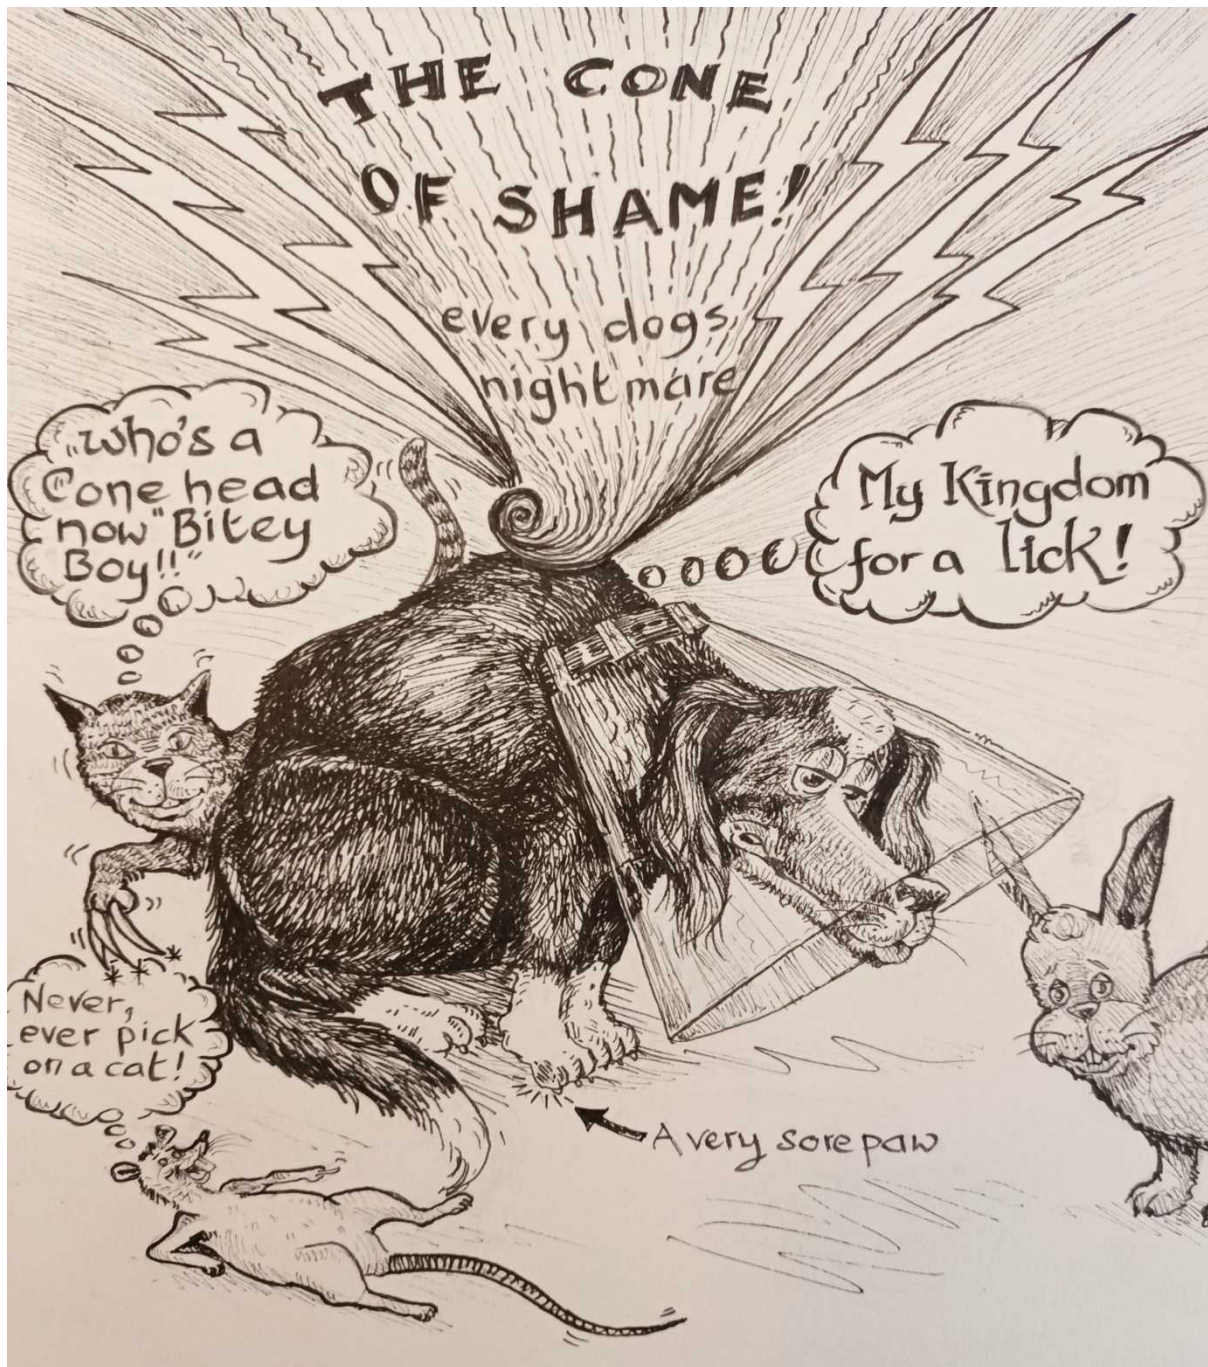 THE CONE
OF SHAME!
every dogs
nightmare
who's a
Cone head
now "Bitey
Boy!!"
My Kingdom
for a lick!
Never,
ever pick
on a cat!
A very sore paw